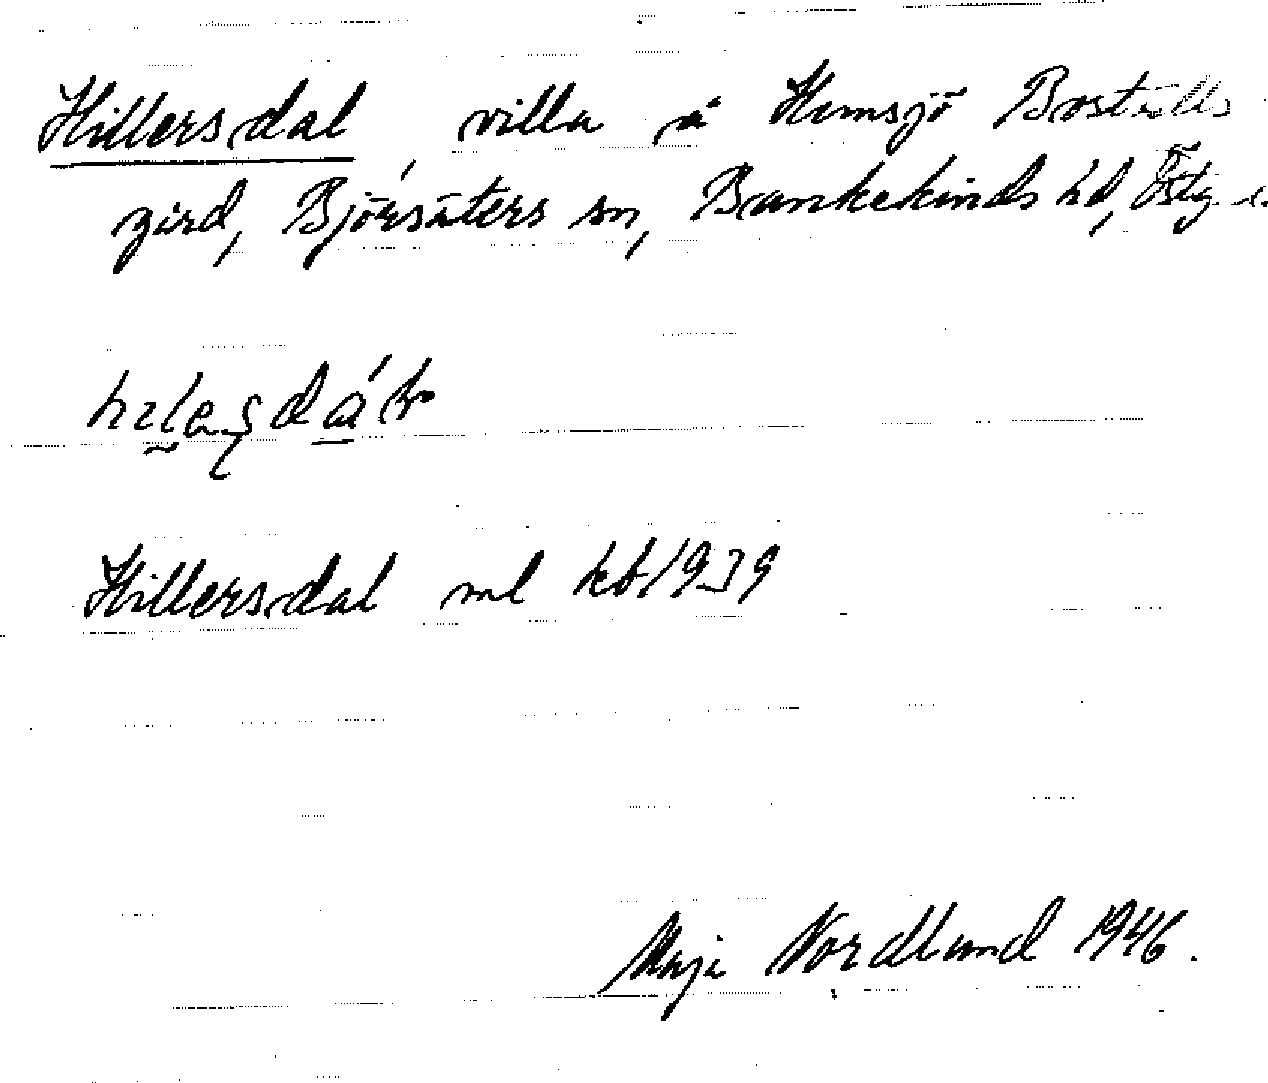 Hillersdal villa å Hemsjö Boställs
gård, Björsäters sn, Bankekinds hd, Östg.
Hillersdal ml kb 1939
Maja Nordlund 1946.